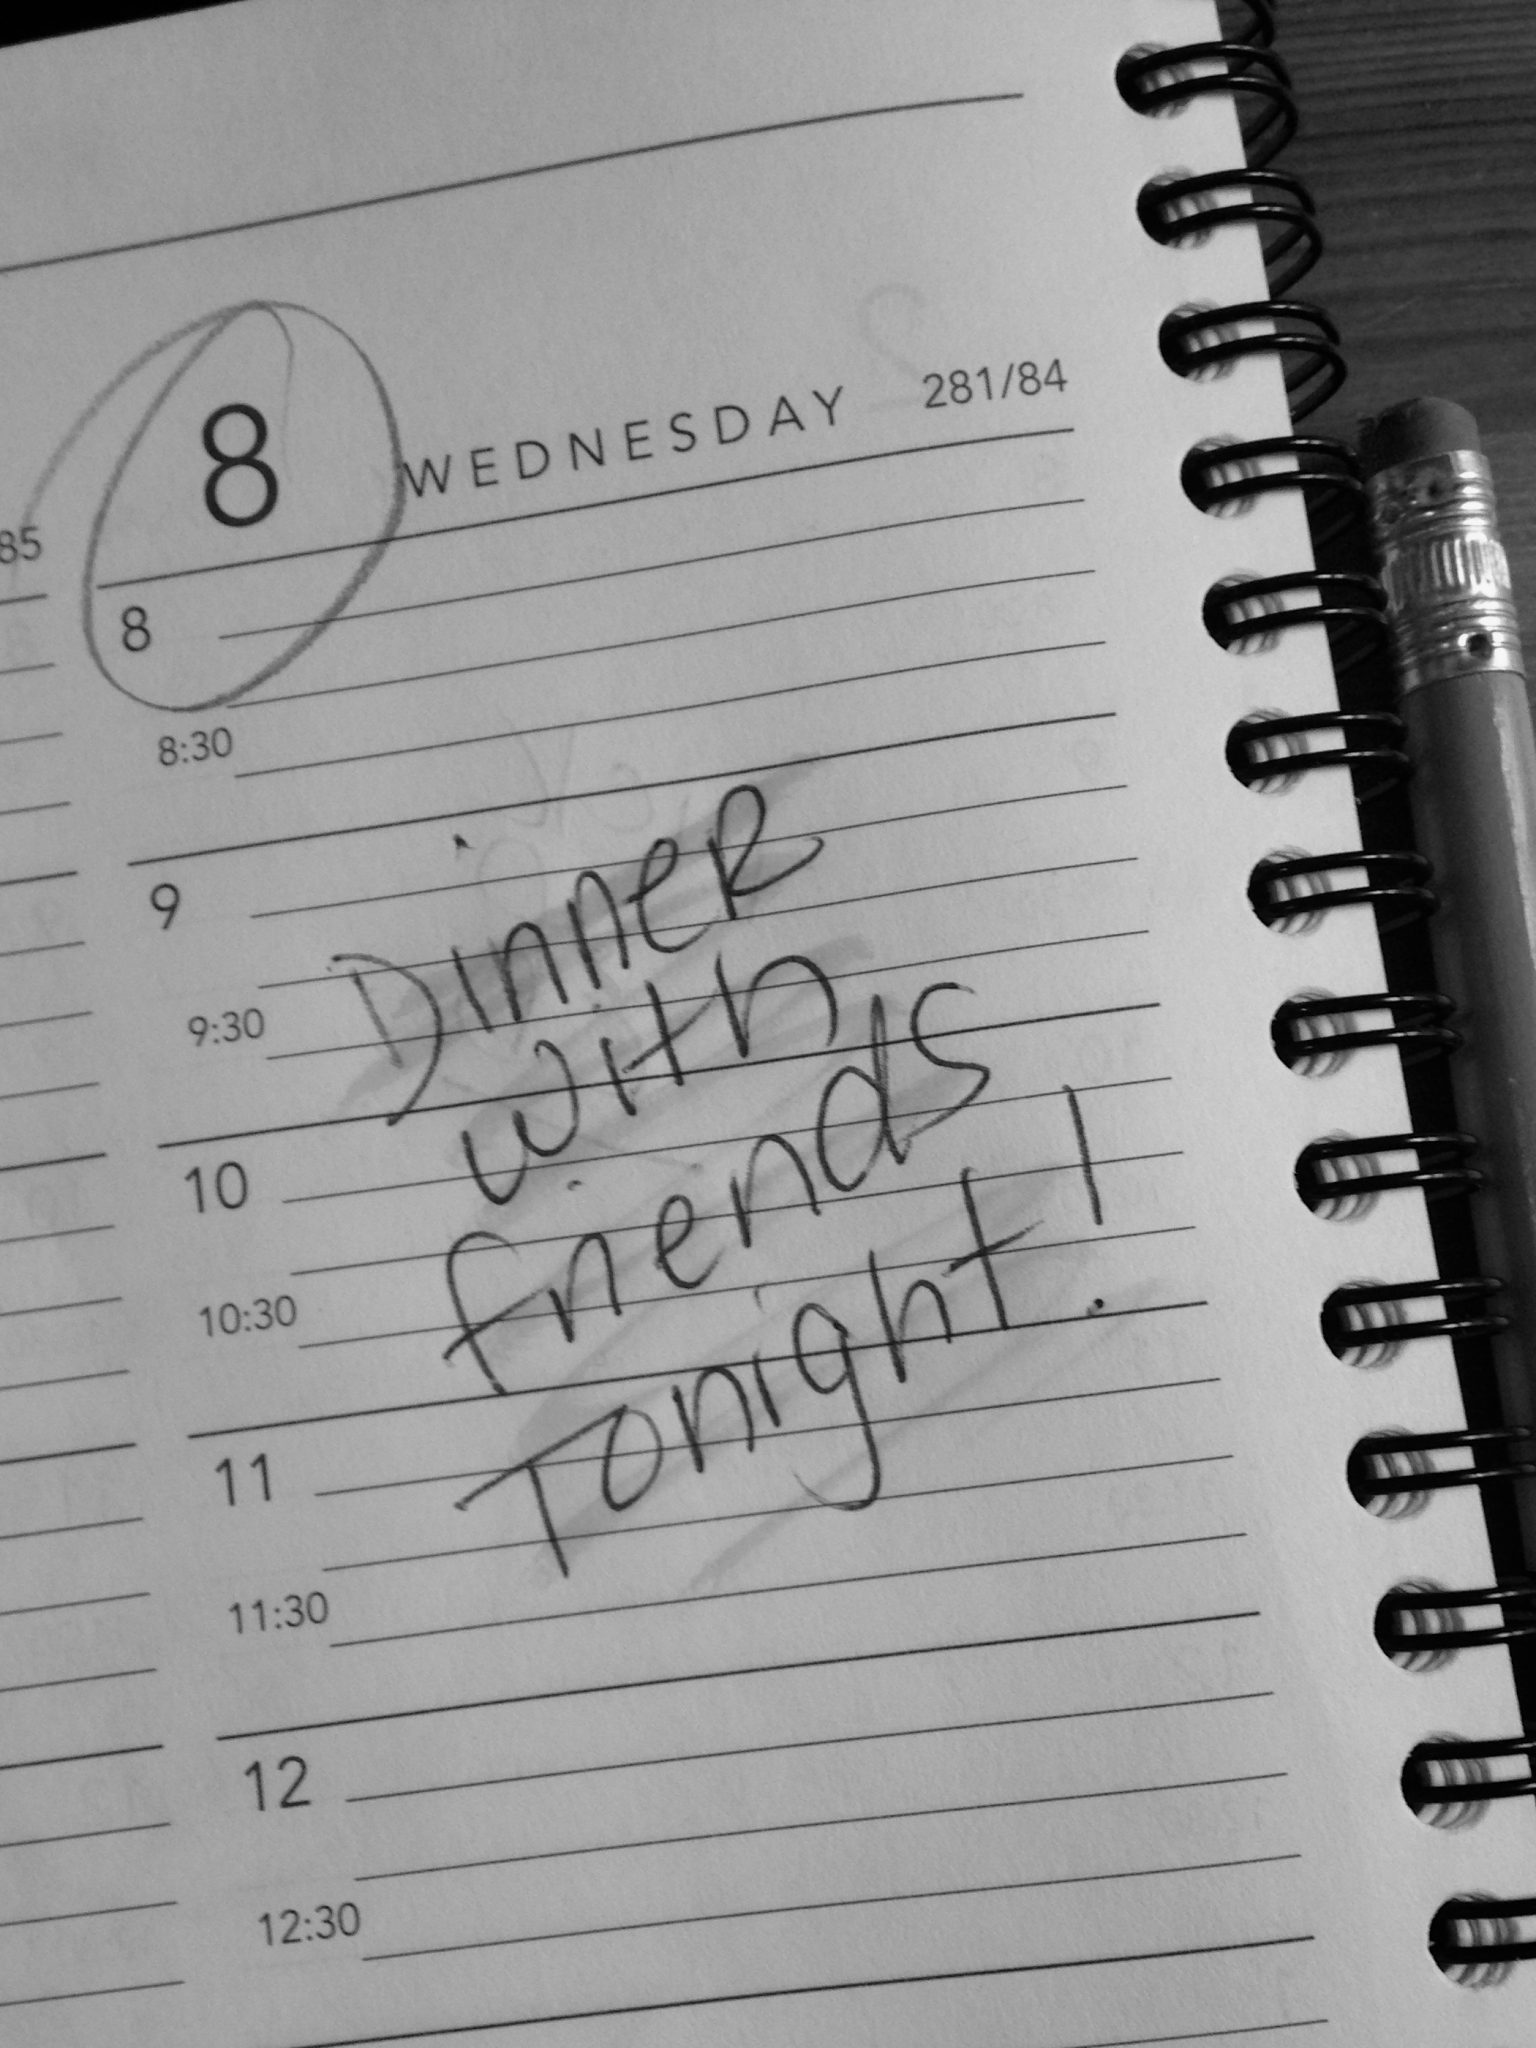 8 WEDNESDAY 281/84
85
8
8:30
9
9:30
10
10:30
11
11:30
12
12:30
Dinner
with
friends
Tonight!